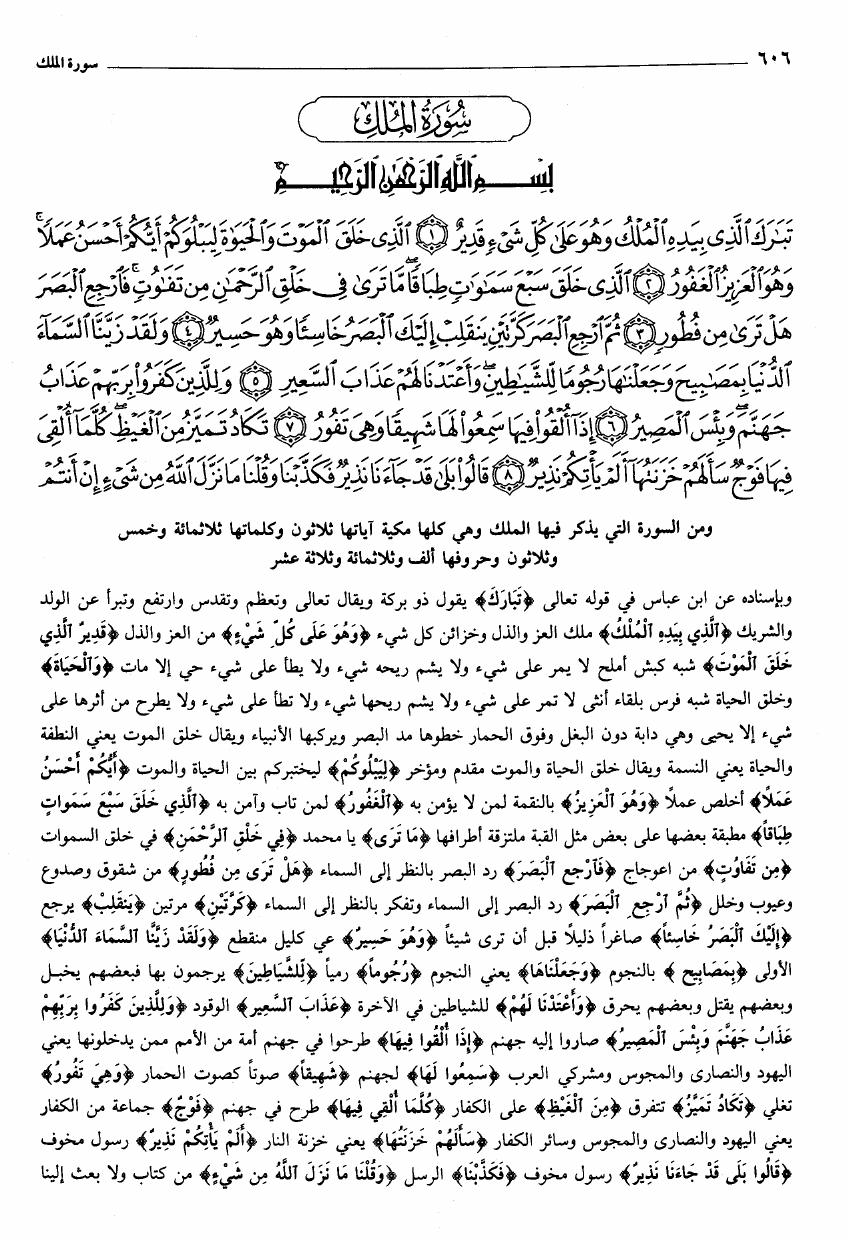 ٦٠٦ سورة الملك
سُورَةُ المُلْكِ
بِسْمِ ٱللَّهِ ٱلرَّحْمَٰنِ ٱلرَّحِيمِ
تَبَٰرَكَ ٱلَّذِى بِيَدِهِ ٱلْمُلْكُ وَهُوَ عَلَىٰ كُلِّ شَىْءٍ قَدِيرٌ ١ ٱلَّذِى خَلَقَ ٱلْمَوْتَ وَٱلْحَيَوٰةَ لِيَبْلُوَكُمْ أَيُّكُمْ أَحْسَنُ عَمَلًا ۚ
وَهُوَ ٱلْعَزِيزُ ٱلْغَفُورُ ٢ ٱلَّذِى خَلَقَ سَبْعَ سَمَٰوَٰتٍ طِبَاقًا ۖ مَّا تَرَىٰ فِى خَلْقِ ٱلرَّحْمَٰنِ مِن تَفَٰوُتٍ ۖ فَٱرْجِعِ ٱلْبَصَرَ
هَلْ تَرَىٰ مِن فُطُورٍ ٣ ثُمَّ ٱرْجِعِ ٱلْبَصَرَ كَرَّتَيْنِ يَنقَلِبْ إِلَيْكَ ٱلْبَصَرُ خَاسِئًا وَهُوَ حَسِيرٌ ٤ وَلَقَدْ زَيَّنَّا ٱلسَّمَآءَ
ٱلدُّنْيَا بِمَصَٰبِيحَ وَجَعَلْنَٰهَا رُجُومًا لِّلشَّيَٰطِينِ ۖ وَأَعْتَدْنَا لَهُمْ عَذَابَ ٱلسَّعِيرِ ٥ وَلِلَّذِينَ كَفَرُوا۟ بِرَبِّهِمْ عَذَابُ
جَهَنَّمَ ۖ وَبِئْسَ ٱلْمَصِيرُ ٦ إِذَآ أُلْقُوا۟ فِيهَا سَمِعُوا۟ لَهَا شَهِيقًا وَهِىَ تَفُورُ ٧ تَكَادُ تَمَيَّزُ مِنَ ٱلْغَيْظِ ۖ كُلَّمَآ أُلْقِىَ
فِيهَا فَوْجٌ سَأَلَهُمْ خَزَنَتُهَآ أَلَمْ يَأْتِكُمْ نَذِيرٌ ٨ قَالُوا۟ بَلَىٰ قَدْ جَآءَنَا نَذِيرٌ فَكَذَّبْنَا وَقُلْنَا مَا نَزَّلَ ٱللَّهُ مِن شَىْءٍ إِنْ أَنتُمْ
ومن السورة التي يذكر فيها الملك وهي كلها مكية آياتها ثلاثون وكلماتها ثلاثمائة وخمس
وثلاثون وحروفها ألف وثلاثمائة وثلاثة عشر
وبإسناده عن ابن عباس في قوله تعالى ﴿تَبَارَكَ﴾ يقول ذو بركة ويقال تعالى وتعظم وتقدس وارتفع وتبرأ عن الولد
والشريك ﴿ٱلَّذِي بِيَدِهِ ٱلْمُلْكُ﴾ ملك العز والذل وخزائن كل شيء ﴿وَهُوَ عَلَى كُلِّ شَيْءٍ﴾ من العز والذل ﴿قَدِيرٌ ٱلَّذِي
خَلَقَ ٱلْمَوْتَ﴾ شبه كبش أملح لا يمر على شيء ولا يشم ريحه شيء ولا يطأ على شيء حي إلا مات ﴿وَٱلْحَيَاةَ﴾
وخلق الحياة شبه فرس بلقاء أنثى لا تمر على شيء ولا يشم ريحها شيء ولا تطأ على شيء ولا يطرح من أثرها على
شيء إلا يحيى وهي دابة دون البغل وفوق الحمار خطوها مد البصر ويركبها الأنبياء ويقال خلق الموت يعني النطفة
والحياة يعني النسمة ويقال خلق الحياة والموت مقدم ومؤخر ﴿لِيَبْلُوَكُمْ﴾ ليختبركم بين الحياة والموت ﴿أَيُّكُمْ أَحْسَنُ
عَمَلاً﴾ أخلص عملاً ﴿وَهُوَ ٱلْعَزِيزُ﴾ بالنقمة لمن لا يؤمن به ﴿ٱلْغَفُورُ﴾ لمن تاب وآمن به ﴿ٱلَّذِي خَلَقَ سَبْعَ سَمَوَاتٍ
طِبَاقاً﴾ مطبقة بعضها على بعض مثل القبة ملتزقة أطرافها ﴿مَا تَرَى﴾ يا محمد ﴿فِي خَلْقِ ٱلرَّحْمَنِ﴾ في خلق السموات
﴿مِن تَفَاوُتٍ﴾ من اعوجاج ﴿فَٱرْجِعِ ٱلْبَصَرَ﴾ رد البصر بالنظر إلى السماء ﴿هَلْ تَرَى مِن فُطُورٍ﴾ من شقوق وصدوع
وعيوب وخلل ﴿ثُمَّ ٱرْجِعِ ٱلْبَصَرَ﴾ رد البصر إلى السماء وتفكر بالنظر إلى السماء ﴿كَرَّتَيْنِ﴾ مرتين ﴿يَنقَلِبْ﴾ يرجع
﴿إِلَيْكَ ٱلْبَصَرُ خَاسِئاً﴾ صاغراً ذليلاً قبل أن ترى شيئاً ﴿وَهُوَ حَسِيرٌ﴾ عي كليل منقطع ﴿وَلَقَدْ زَيَّنَّا ٱلسَّمَاءَ ٱلدُّنْيَا﴾
الأولى ﴿بِمَصَابِيحَ﴾ بالنجوم ﴿وَجَعَلْنَاهَا﴾ يعني النجوم ﴿رُجُوماً﴾ رمياً ﴿لِّلشَّيَاطِينَ﴾ يرجمون بها فبعضهم يخبل
وبعضهم يقتل وبعضهم يحرق ﴿وَأَعْتَدْنَا لَهُمْ﴾ للشياطين في الآخرة ﴿عَذَابَ ٱلسَّعِيرِ﴾ الوقود ﴿وَلِلَّذِينَ كَفَرُوا بِرَبِّهِمْ
عَذَابُ جَهَنَّمَ وَبِئْسَ ٱلْمَصِيرُ﴾ صاروا إليه جهنم ﴿إِذَا أُلْقُوا فِيهَا﴾ طرحوا في جهنم أمة من الأمم ممن يدخلونها يعني
اليهود والنصارى والمجوس ومشركي العرب ﴿سَمِعُوا لَهَا﴾ لجهنم ﴿شَهِيقاً﴾ صوتاً كصوت الحمار ﴿وَهِيَ تَفُورُ﴾
تغلي ﴿تَكَادُ تَمَيَّزُ﴾ تتفرق ﴿مِنَ ٱلْغَيْظِ﴾ على الكفار ﴿كُلَّمَا أُلْقِيَ فِيهَا﴾ طرح في جهنم ﴿فَوْجٌ﴾ جماعة من الكفار
يعني اليهود والنصارى والمجوس وسائر الكفار ﴿سَأَلَهُمْ خَزَنَتُهَا﴾ يعني خزنة النار ﴿أَلَمْ يَأْتِكُمْ نَذِيرٌ﴾ رسول مخوف
﴿قَالُوا بَلَى قَدْ جَاءَنَا نَذِيرٌ﴾ رسول مخوف ﴿فَكَذَّبْنَا﴾ الرسل ﴿وَقُلْنَا مَا نَزَّلَ ٱللَّهُ مِن شَيْءٍ﴾ من كتاب ولا بعث إلينا